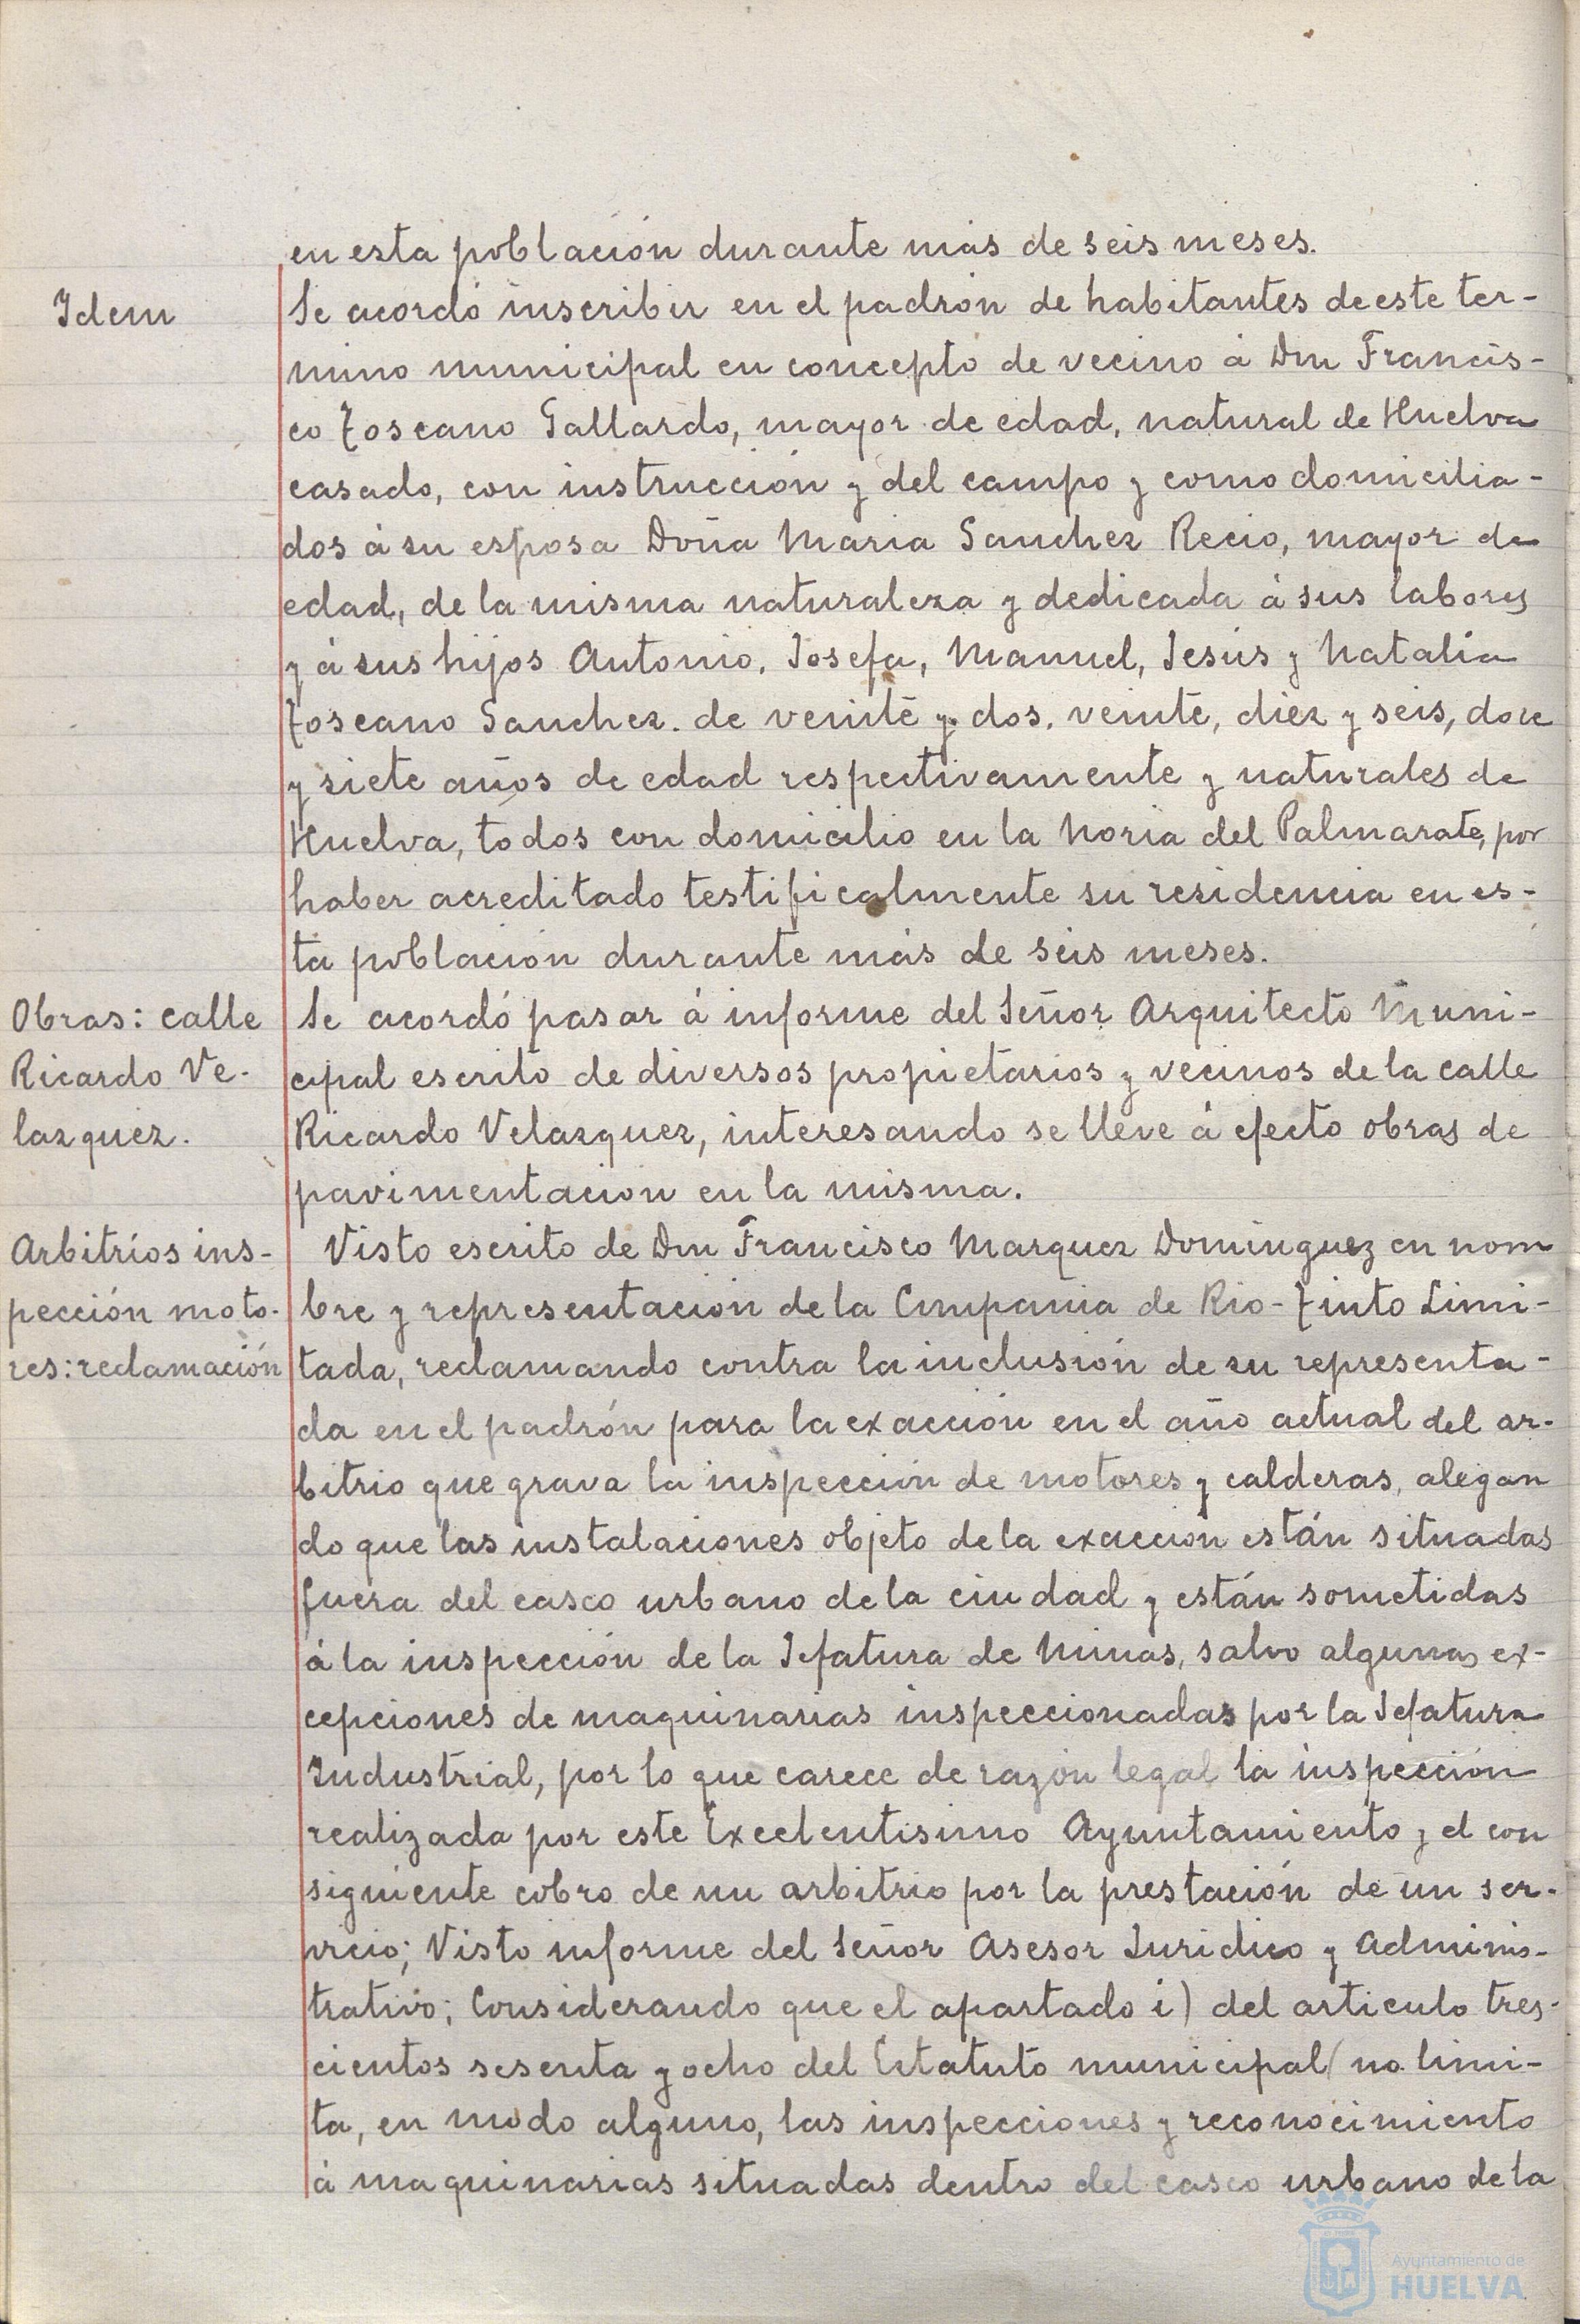 en esta población durante más de seis meses.
Idem
Se acordó inscribir en el padrón de habitantes de este ter-
mino municipal en concepto de vecino á Don Francis-
co Toscano Gallardo, mayor de edad, natural de Huelva
casado, con instrucción y del campo y como domicilia-
dos á su esposa Doña Maria Sanchez Recio, mayor de
edad, de la misma naturaleza y dedicada á sus labores
y á sus hijos Antonio, Josefa, Manuel, Jesús y Natalia
Toscano Sanchez. de veinte y dos, veinte, diez y seis, doce
y siete años de edad respectivamente y naturales de
Huelva, todos con domicilio en la Noria del Palmarate, por
haber acreditado testificalmente su residencia en es-
ta población durante más de seis meses.
Obras: calle
Ricardo Ve-
lazquez.
Se acordó pasar á informe del Señor Arquitecto Muni-
cipal escrito de diversos propietarios y vecinos de la calle
Ricardo Velazquez, interesando se lleve á efecto obras de
pavimentacion en la misma.
Arbitríos ins-
pección moto-
res: reclamación
Visto escrito de Don Francisco Marquez Dominguez en nom
bre y representación de la Compañia de Rio-Tinto Limi-
tada, reclamando contra la inclusión de su representa-
da en el padrón para la exacción en el año actual del ar-
bitrio que grava la inspección de motores y calderas, alegan
do que las instalaciones objeto de la exaccion están situadas
fuera del casco urbano de la ciudad y están sometidas
á la inspección de la Jefatura de Minas, salvo algunas ex-
cepciones de maquinarias inspeccionadas por la Jefatura
Industrial, por lo que carece de razón legal la inspección
realizada por este Excelentisimo Ayuntamiento y el con
siguiente cobro de un arbitrio por la prestación de un ser-
vicio; Visto informe del Señor Asesor Juridico y Adminis-
trativo; Considerando que el apartado i) del articulo tres-
cientos sesenta y ocho del Estatuto municipal no limi-
ta, en modo alguno, las inspecciones y reconocimiento
á maquinarias situadas dentro del casco urbano de la
Ayuntamiento de
HUELVA